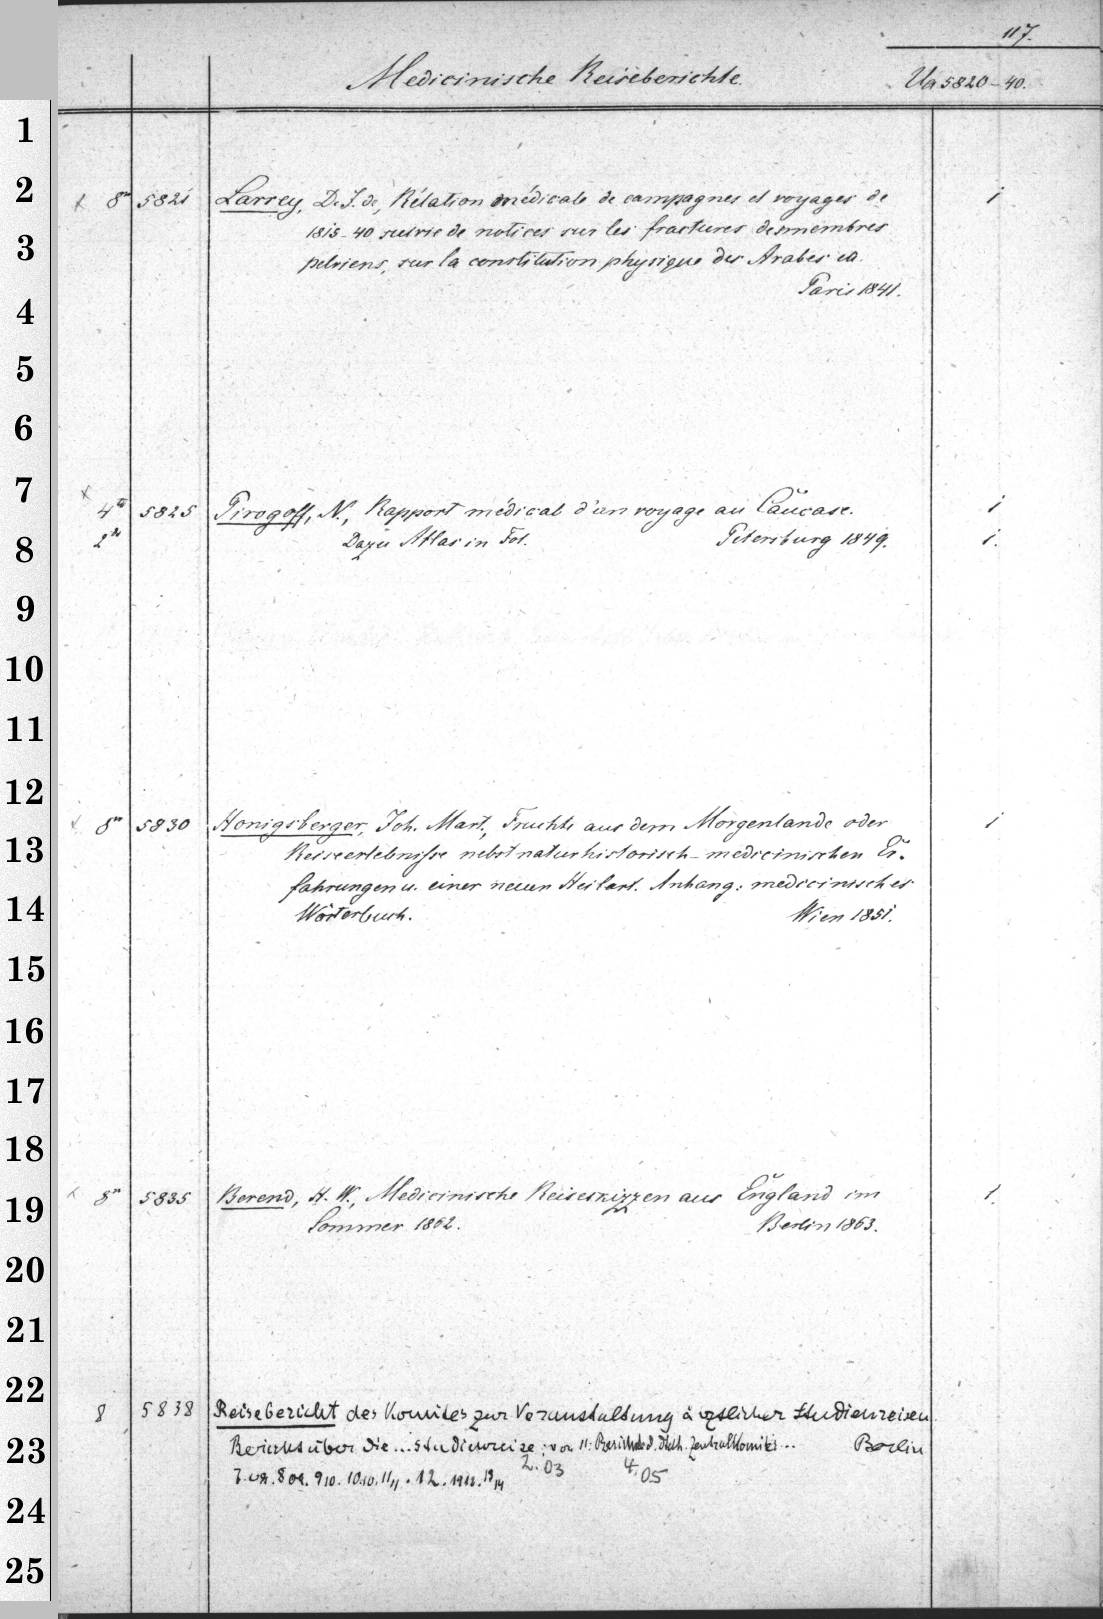 117.
Medicinische Reiseberichte. Ua 5820-40.
1
2
x 8° 5821 Larrey, D. J. de, Rélation médicale de campagnes et voyages de 1
1815-40 suivie de notices sur les fractures des membres
3
pelviens, sur la constitution physique des Arabes
Paris 1841.
4
5
6
7
x 4to 5825 Pirogoff, N., Rapport médical d'un voyage au Caucase. 1
8
2° Dazu Atlas in Fol. Petersburg 1849. 1.
9
10
11
12
x 8° 5830 Honigsberger, Joh. Mart., Früchte aus dem Morgenlande oder 1
13
Reiseerlebnisse nebst naturhistorisch-medicinischen Er-
fahrungen u. einer neuen Heilart. Anhang: medicinisches
14
Wörterbuch. Wien 1851.
15
16
17
18
x 8° 5835 Berend, H. W., Medicinische Reiseskizzen aus England im 1.
19
Sommer 1862. Berlin 1863.
20
21
22
8 5838 Reisebericht des Komites zur Veranstaltung ärztlicher Studienreisen
23
Bericht über die ... Studienreise; von 11: d. Zentralkomites ... Berlin
2. 03 4. 05
7. 8 09. 9 10. 10 10. 11 11. 12. 1912. 13 14
24
25